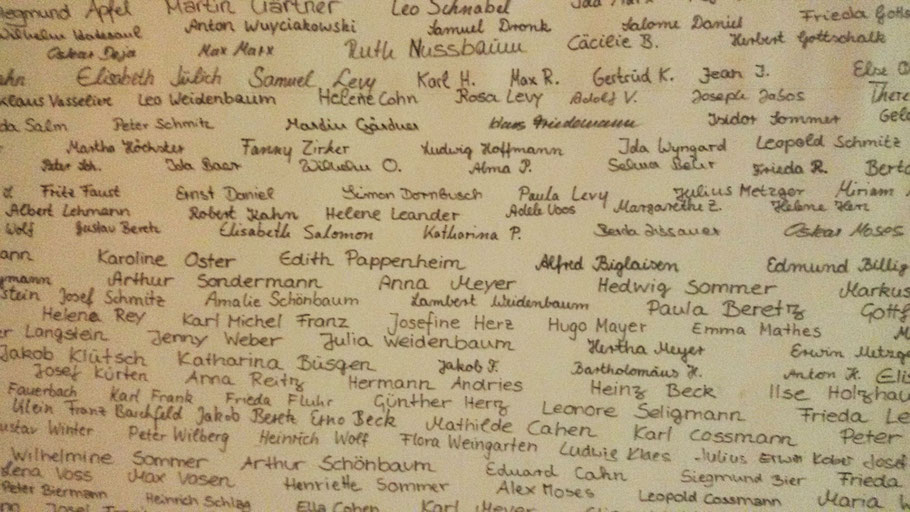 Siegmund Apfel Martin Gärtner Leo Schnabel Ida Marx Frieda Gotts
Wilhelm Anton Wuyciakowski Samuel Dronk Salome Daniel
Oskar Deja Max Marx Ruth Nussbaum Cäcilie B. Herbert Gottschalk
ahn Elisabeth Jülich Samuel Levy Karl H. Max R. Gertrud K. Jean J. Else
Klaus Vasselive Leo Weidenbaum Helene Cohn Rosa Levy Adolf V. Joseph Jabos There
da Salm Peter Schmitz Martin Gärdner Klaus Friedemann Isidor Sommer Gel
Martha Höchster Fanny Zirker Ludwig Hoffmann Ida Wyngard Leopold Schmitz
Peter Joh. Ida Baer Wilhelm O. Alma P. Selma Behr Frieda R. Berta
d. Fritz Faust Ernst Daniel Simon Dornbusch Paula Levy Julius Metzger Miriam
Albert Lehmann Robert Kahn Helene Leander Adele Voos Margarethe Z. Helene Herz
Wolf Gustav Beretz Elisabeth Salomon Katharina P. Berta Dissauer Oskar Moses
ann Karoline Oster Edith Pappenheim Alfred Biglaisen Edmund Billig
mann Arthur Sondermann Anna Meyer Hedwig Sommer Markus
stein Josef Schmitz Amalie Schönbaum Lambert Weidenbaum Paula Beretz Gottf
Helena Rey Karl Michel Franz Josefine Herz Hugo Mayer Emma Mathes
er Langstein Jenny Weber Julia Weidenbaum Hertha Meyer Erwin Metzge
Jakob Klütsch Katharina Büsgen Jakob F. Bartholomäus H. Anton K. Elis
Josef Kürten Anna Reitz Hermann Andries Heinz Beck Ilse Holzhau
Fauerbach Karl Frank Frieda Fluhr Günther Herz Leonore Seligmann Frieda Le
Klein Franz Barchfeld Jakob Beretz Erno Beck Mathilde Cahen Karl Cossmann Peter
Gustav Winter Peter Wilberg Heinrich Wolf Flora Weingarten Ludwig Klaes Julius Erwin Kober Josef
Wilhelmine Sommer Arthur Schönbaum Eduard Cahn Siegmund Bier Frieda
Lena Voss Max Vasen Henriette Sommer Alex Moses Leopold Cossmann Maria W
Peter Biermann Heinrich Schlag Ella Cohen Karl Meyer
Josef